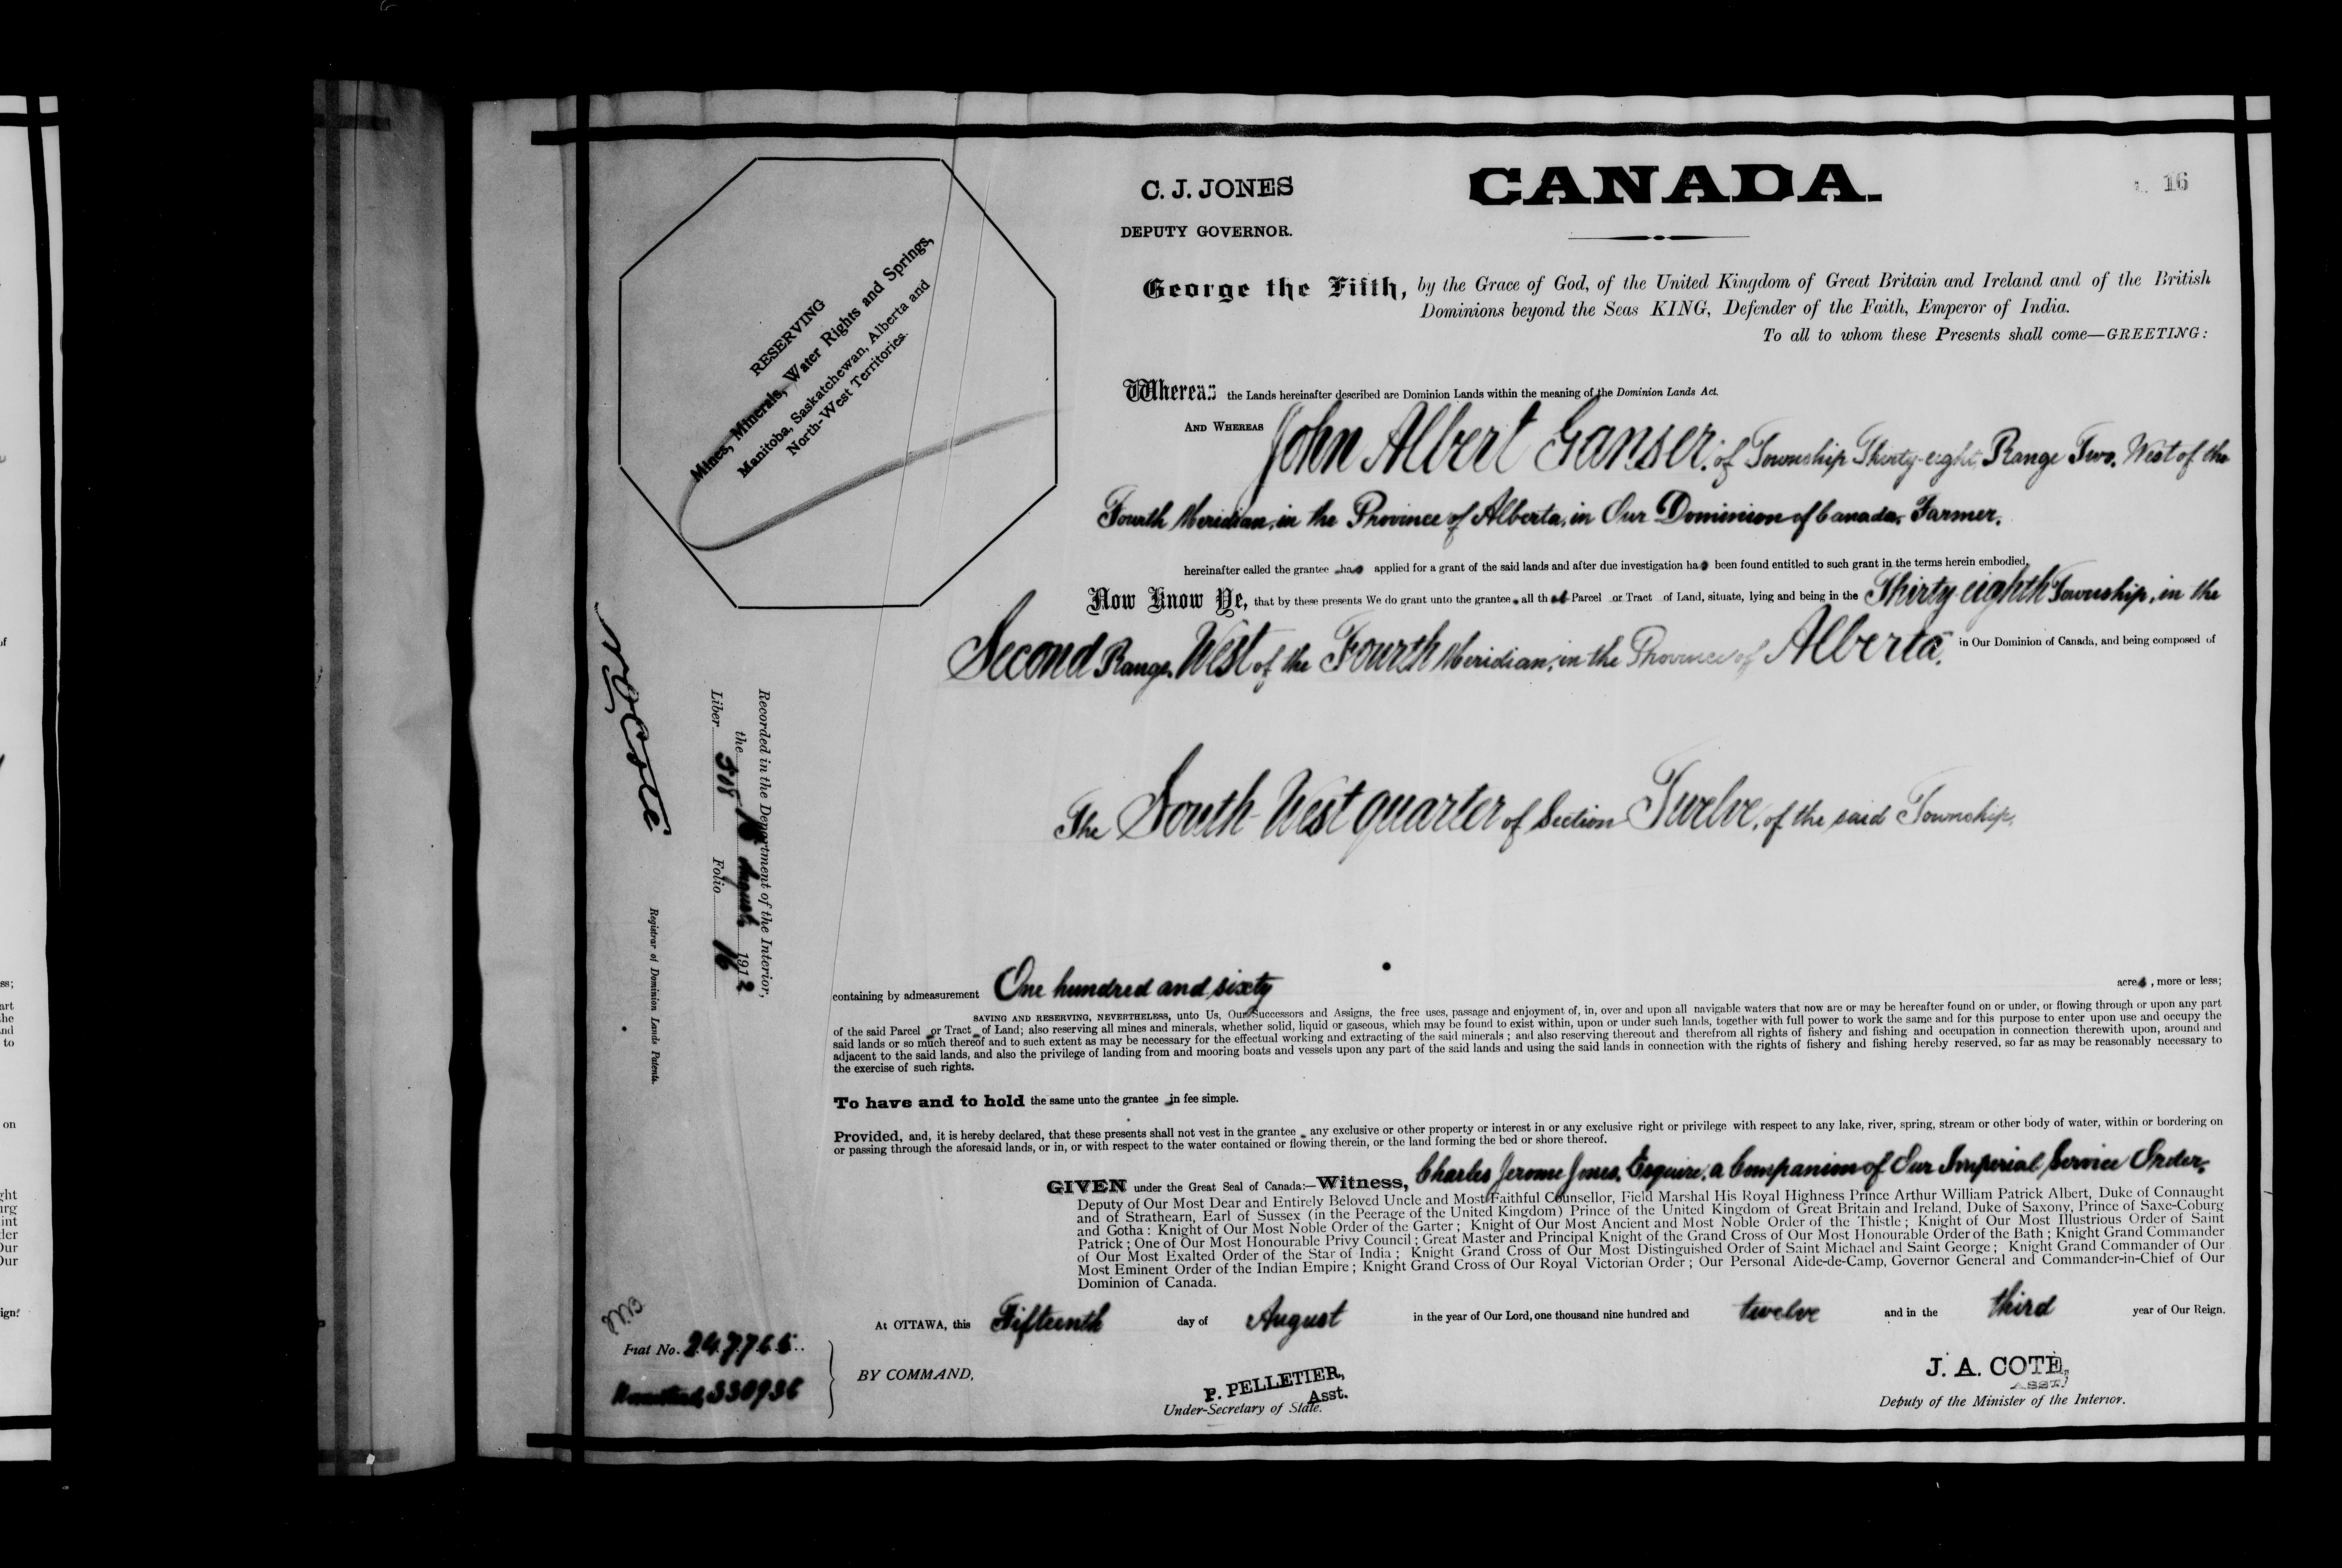 16
CANADA.
C. J. JONES
DEPUTY GOVERNOR.
RESERVING
Mines, Minerals, Water Rights and Springs,
Manitoba, Saskatchewan, Alberta and
North-West Territories.
George the Fifth, by the Grace of God, of the United Kingdom of Great Britain and Ireland and of the British
Dominions beyond the Seas KING, Defender of the Faith, Emperor of India.
To all to whom these Presents shall come—GREETING:
Whereas the Lands hereinafter described are Dominion Lands within the meaning of the Dominion Lands Act.
AND WHEREAS John Albert Ganser, of Township Thirty-eight, Range Two, West of the
Fourth Meridian, in the Province of Alberta, in Our Dominion of Canada, Farmer,
hereinafter called the grantee has applied for a grant of the said lands and after due investigation has been found entitled to such grant in the terms herein embodied,
Now Know Ye, that by these presents We do grant unto the grantee, all that Parcel or Tract of Land, situate, lying and being in the Thirty eighth Township, in the
Second Range, West of the Fourth Meridian, in the Province of Alberta, in Our Dominion of Canada, and being composed of
The South West quarter of Section Twelve, of the said Township,
containing by admeasurement One hundred and sixty acres, more or less;
SAVING AND RESERVING, NEVERTHELESS, unto Us, Our Successors and Assigns, the free uses, passage and enjoyment of, in, over and upon all navigable waters that now are or may be hereafter found on or under, or flowing through or upon any part
of the said Parcel or Tract of Land; also reserving all mines and minerals, whether solid, liquid or gaseous, which may be found to exist within, upon or under such lands, together with full power to work the same and for this purpose to enter upon use and occupy the
said lands or so much thereof and to such extent as may be necessary for the effectual working and extracting of the said minerals; and also reserving thereout and therefrom all rights of fishery and fishing and occupation in connection therewith upon, around and
adjacent to the said lands, and also the privilege of landing from and mooring boats and vessels upon any part of the said lands and using the said lands in connection with the rights of fishery and fishing hereby reserved, so far as may be reasonably necessary to
the exercise of such rights.
To have and to hold the same unto the grantee in fee simple.
Provided, and, it is hereby declared, that these presents shall not vest in the grantee any exclusive or other property or interest in or any exclusive right or privilege with respect to any lake, river, spring, stream or other body of water, within or bordering on
or passing through the aforesaid lands, or in, or with respect to the water contained or flowing therein, or the land forming the bed or shore thereof.
GIVEN under the Great Seal of Canada:—Witness, Charles Jerome Jones, Esquire, a Companion of Our Imperial Service Order,
Deputy of Our Most Dear and Entirely Beloved Uncle and Most Faithful Counsellor, Field Marshal His Royal Highness Prince Arthur William Patrick Albert, Duke of Connaught
and of Strathearn, Earl of Sussex (in the Peerage of the United Kingdom) Prince of the United Kingdom of Great Britain and Ireland, Duke of Saxony, Prince of Saxe-Coburg
and Gotha: Knight of Our Most Noble Order of the Garter; Knight of Our Most Ancient and Most Noble Order of the Thistle; Knight of Our Most Illustrious Order of Saint
Patrick; One of Our Most Honourable Privy Council; Great Master and Principal Knight of the Grand Cross of Our Most Honourable Order of the Bath; Knight Grand Commander
of Our Most Exalted Order of the Star of India; Knight Grand Cross of Our Most Distinguished Order of Saint Michael and Saint George; Knight Grand Commander of Our
Most Eminent Order of the Indian Empire; Knight Grand Cross of Our Royal Victorian Order; Our Personal Aide-de-Camp, Governor General and Commander-in-Chief of Our
Dominion of Canada.
At OTTAWA, this Fifteenth day of August in the year of Our Lord, one thousand nine hundred and twelve and in the third year of Our Reign.
BY COMMAND,
P. PELLETIER,
Asst.
Under-Secretary of State.
J. A. COTE,
ASST.
Deputy of the Minister of the Interior.
Recorded in the Department of the Interior,
the August 1912
Liber 518 Folio 16
N O Coté
Registrar of Dominion Lands Patents.
Fiat No. 247765
Homestead, 330936